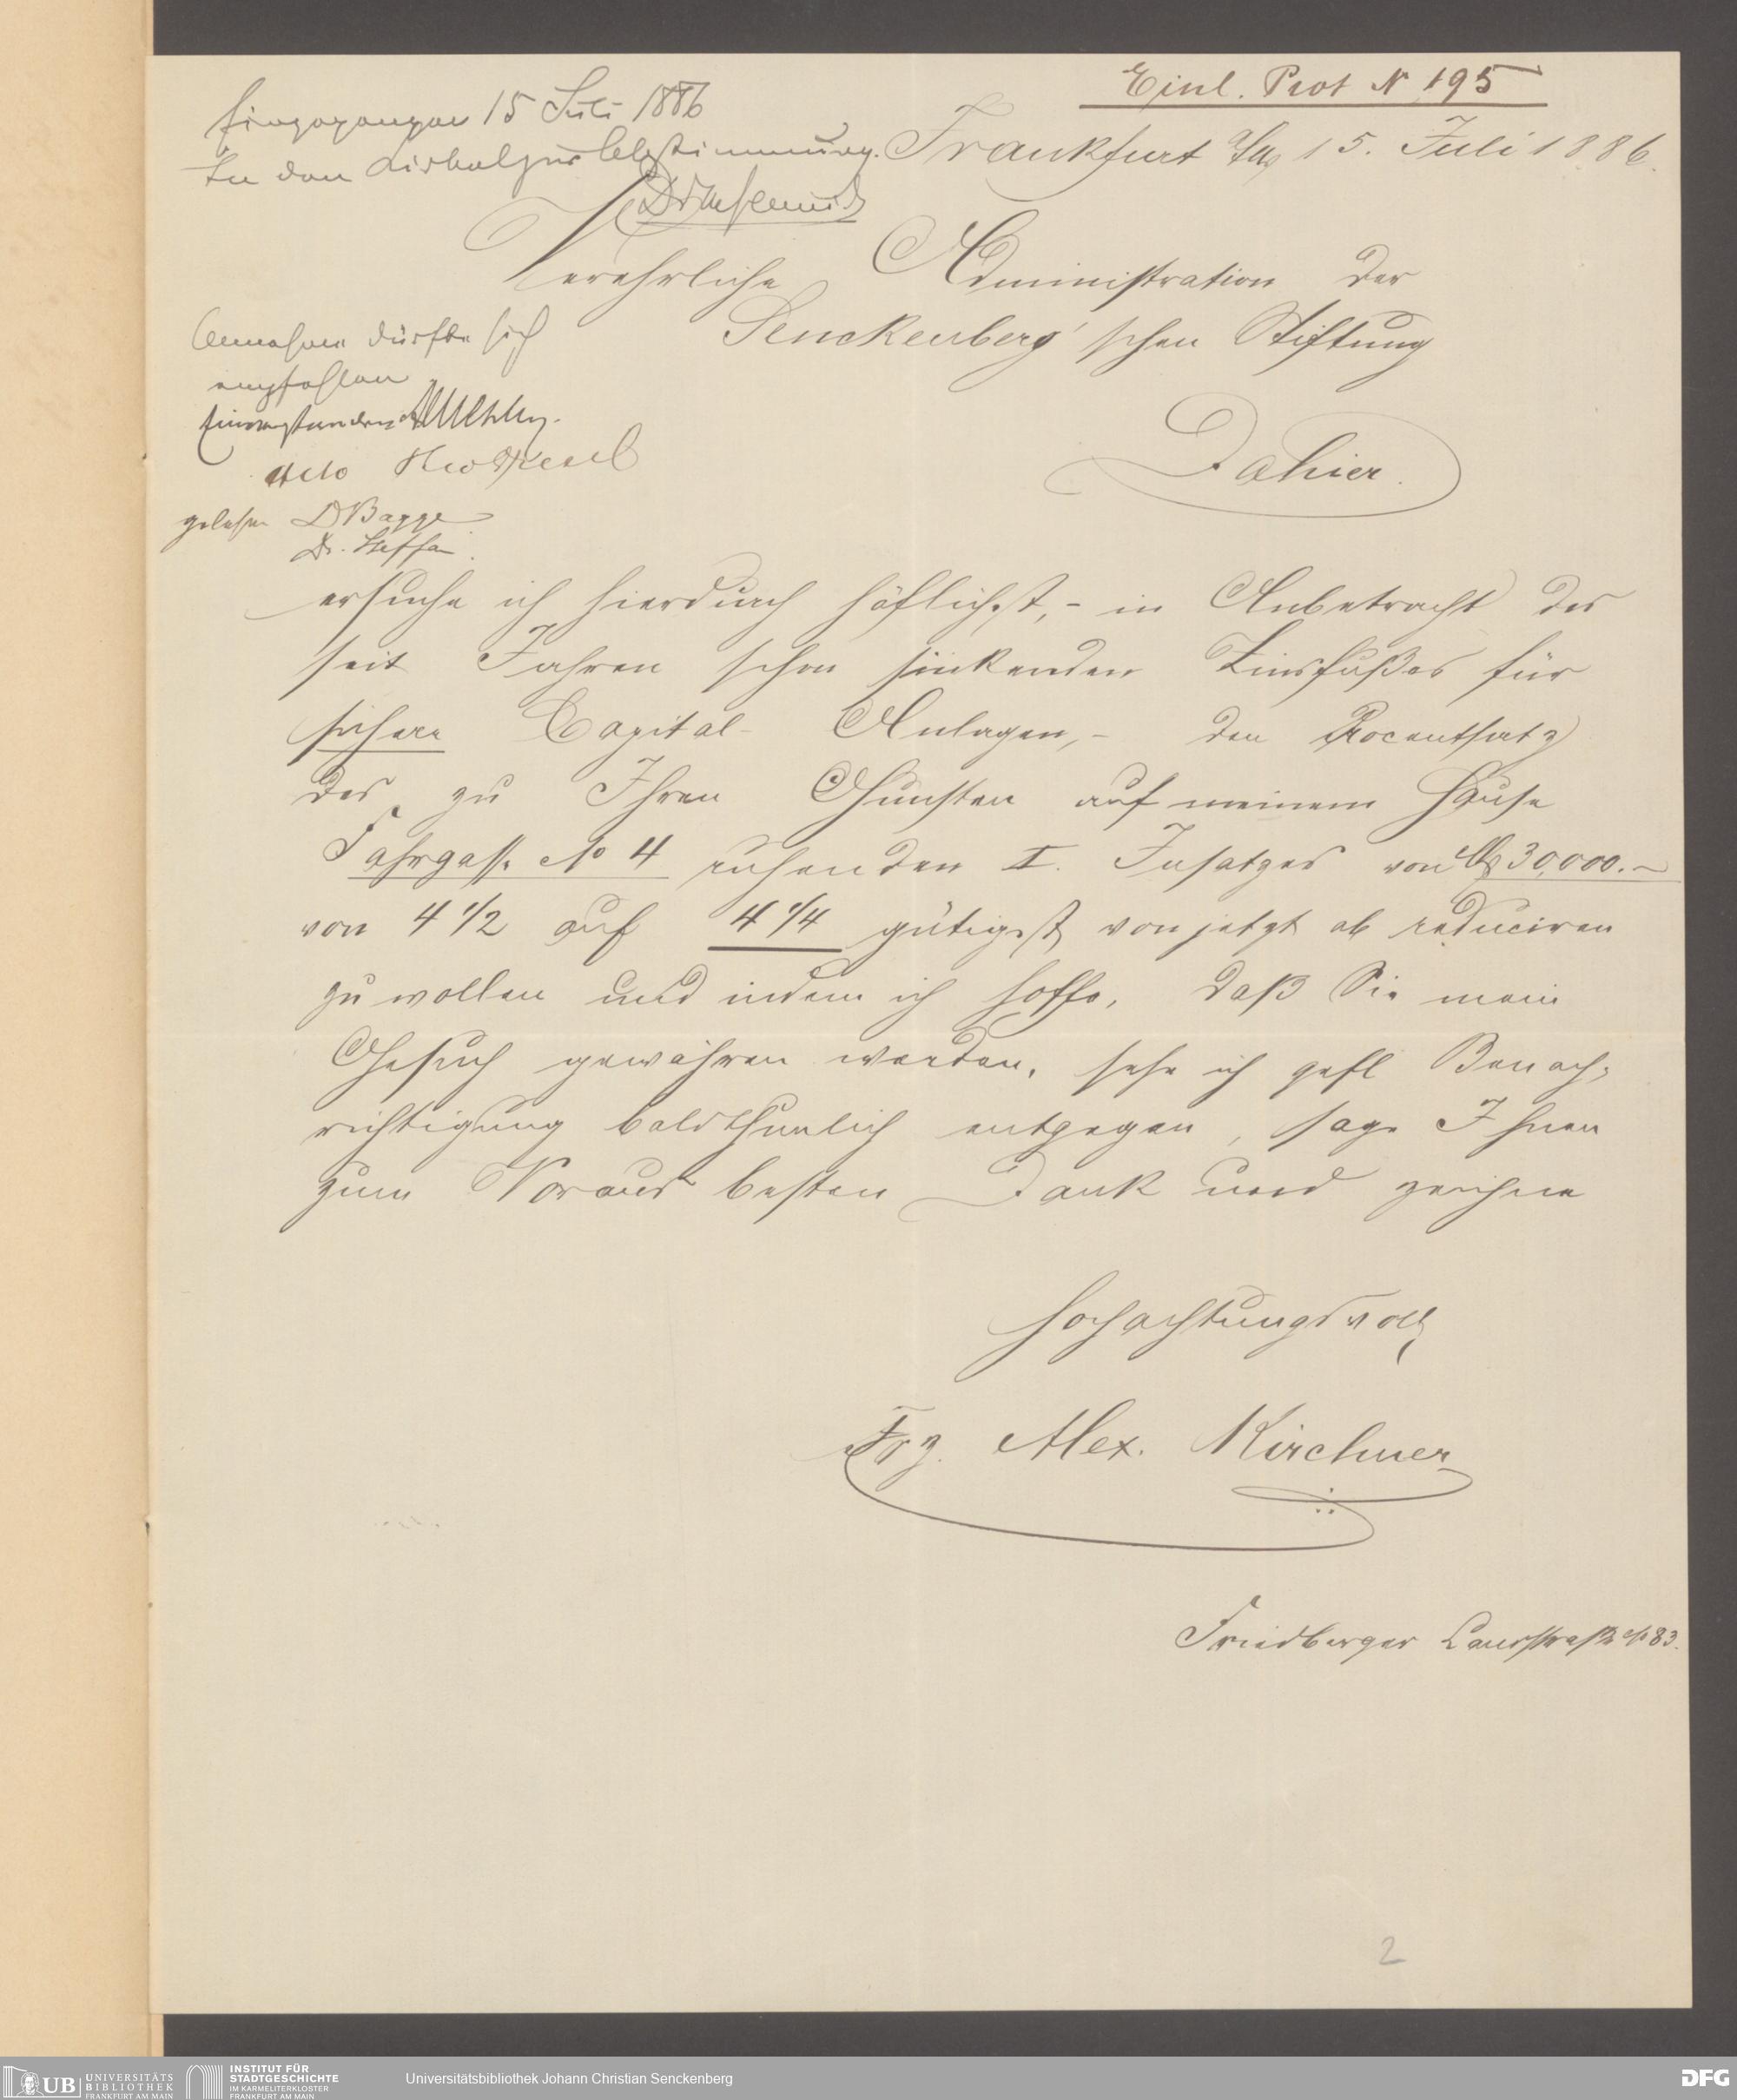 Einl. Prot N 195
Eingegangen 15 Juli 1886
In den Lishal zur Abstimmung.
Frankfurt a/M, 15. Juli 1886.
Verehrliche Administration der
Senckenberg'schen Stiftung
Dahier.
Annahme dürfte sich
empfehlen
Einverstanden
dto
gelesen Dr Bagge
Dr. Steffan.
ersuche ich hierdurch höflichst, - in Anbetracht des
seit Jahren schon sinkenden Zinsfußes für
sichere Capital- Anlagen, - den Procentsatz
des zu Ihren Gunsten auf meinem Hause
Fahrgasse No 4 ruhenden I. Insatzes von M 30,000.-
von 4 1/2 auf 4 1/4 gütigst von jetzt ab reduciren
zu wollen und indem ich hoffe, daß Sie mein
Gesuch gewähren werden, sehe ich gefl Benach-
richtigung baldthunlich entgegen, sage Ihnen
zum Voraus besten Dank und zeichne
Hochachtungsvoll
Frz. Alex. Kirchner
Friedberger Landstraße No 83.
2
UB UNIVERSITÄTS
BIBLIOTHEK
FRANKFURT AM MAIN
INSTITUT FÜR
STADTGESCHICHTE
IM KARMELITERKLOSTER
FRANKFURT AM MAIN
Universitätsbibliothek Johann Christian Senckenberg
DFG